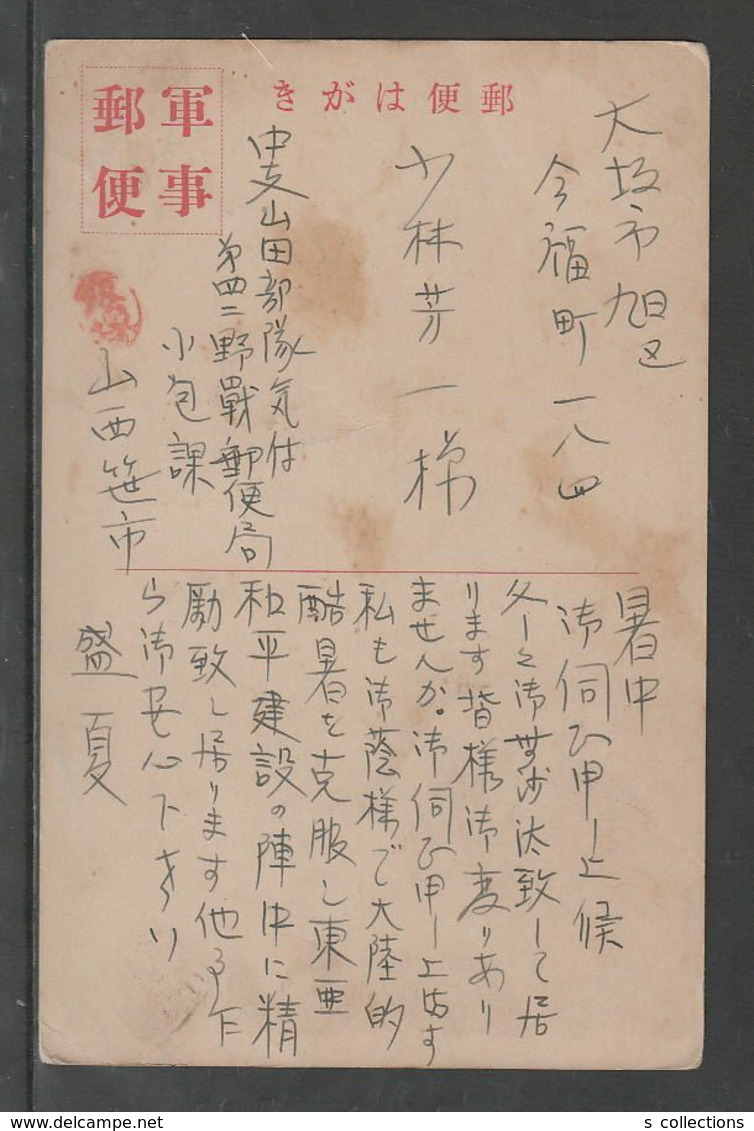 郵便はがき
軍事
郵便
大坂市旭区
今福町一八四
小林芳一様
中支山田部隊気付
第四二野戰郵便局
小包課
山西笹市
暑中
御伺ひ申し上候
久しく御無沙汰致して居
ります皆様御変りあり
ませんか。御伺ひ申し上ます
私も御蔭様で大陸的
酷暑を克服し東亜
和平建設の陣中に精
励致し居ります他事乍
ら御安心下さい
盛夏
s collections